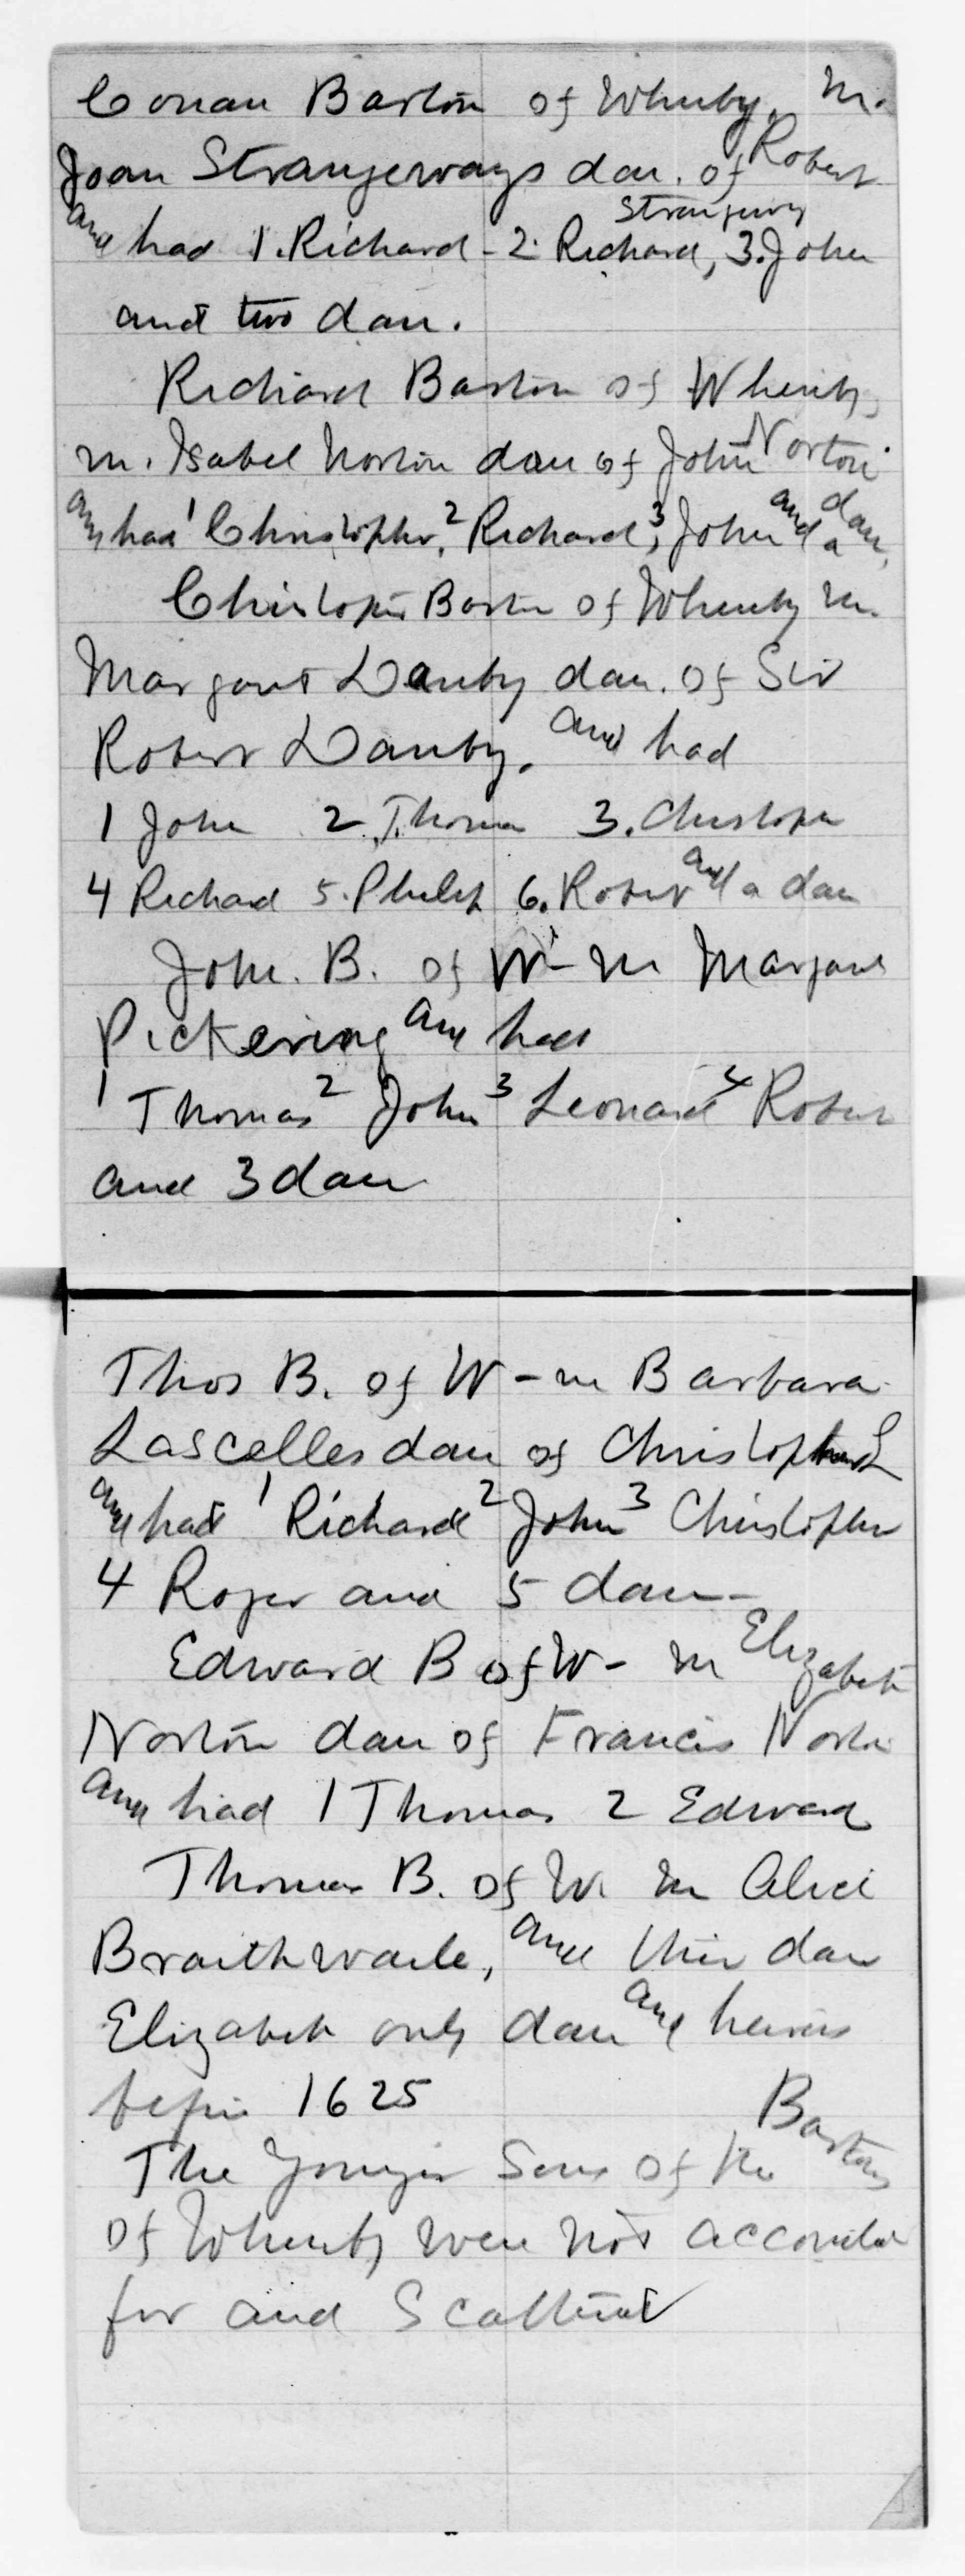 Conan Barton of Whenby, m.
Joan Strangerways dau. of Robert
Strangerways
and had 1. Richard - 2. Richard, 3. John
and two dau.
Richard Barton of Whenby,
m. Isabel Norton dau of John Norton
and had 1 Christopher, 2 Richard, 3 John and a dau.
Christopher Barton of Whenby m.
Margaret Danby dau. of Sir
Robert Danby. and had
1 John 2. Thomas 3. Christopher
4 Richard 5. Philip 6. Robert and a dau
John. B. of W- m Margaret
Pickering and had
1 Thomas 2 John 3 Leonard 4 Robert
and 3 dau
Thos B. of W - m Barbara
Lascelles dau of Christopher L
and had 1 Richard 2 John 3 Christopher
4 Roger and 5 dau-
Edward B of W- m Elizabeth
Norton dau of Francis Norton
and had 1 Thomas 2 Edward
Thomas B. of W. m Alice
Braithwaite, and their dau
Elizabeth only dau and heiress
before 1625
The Younger Sons of the Bartons
of Whenby were not accounted
for and Scattered